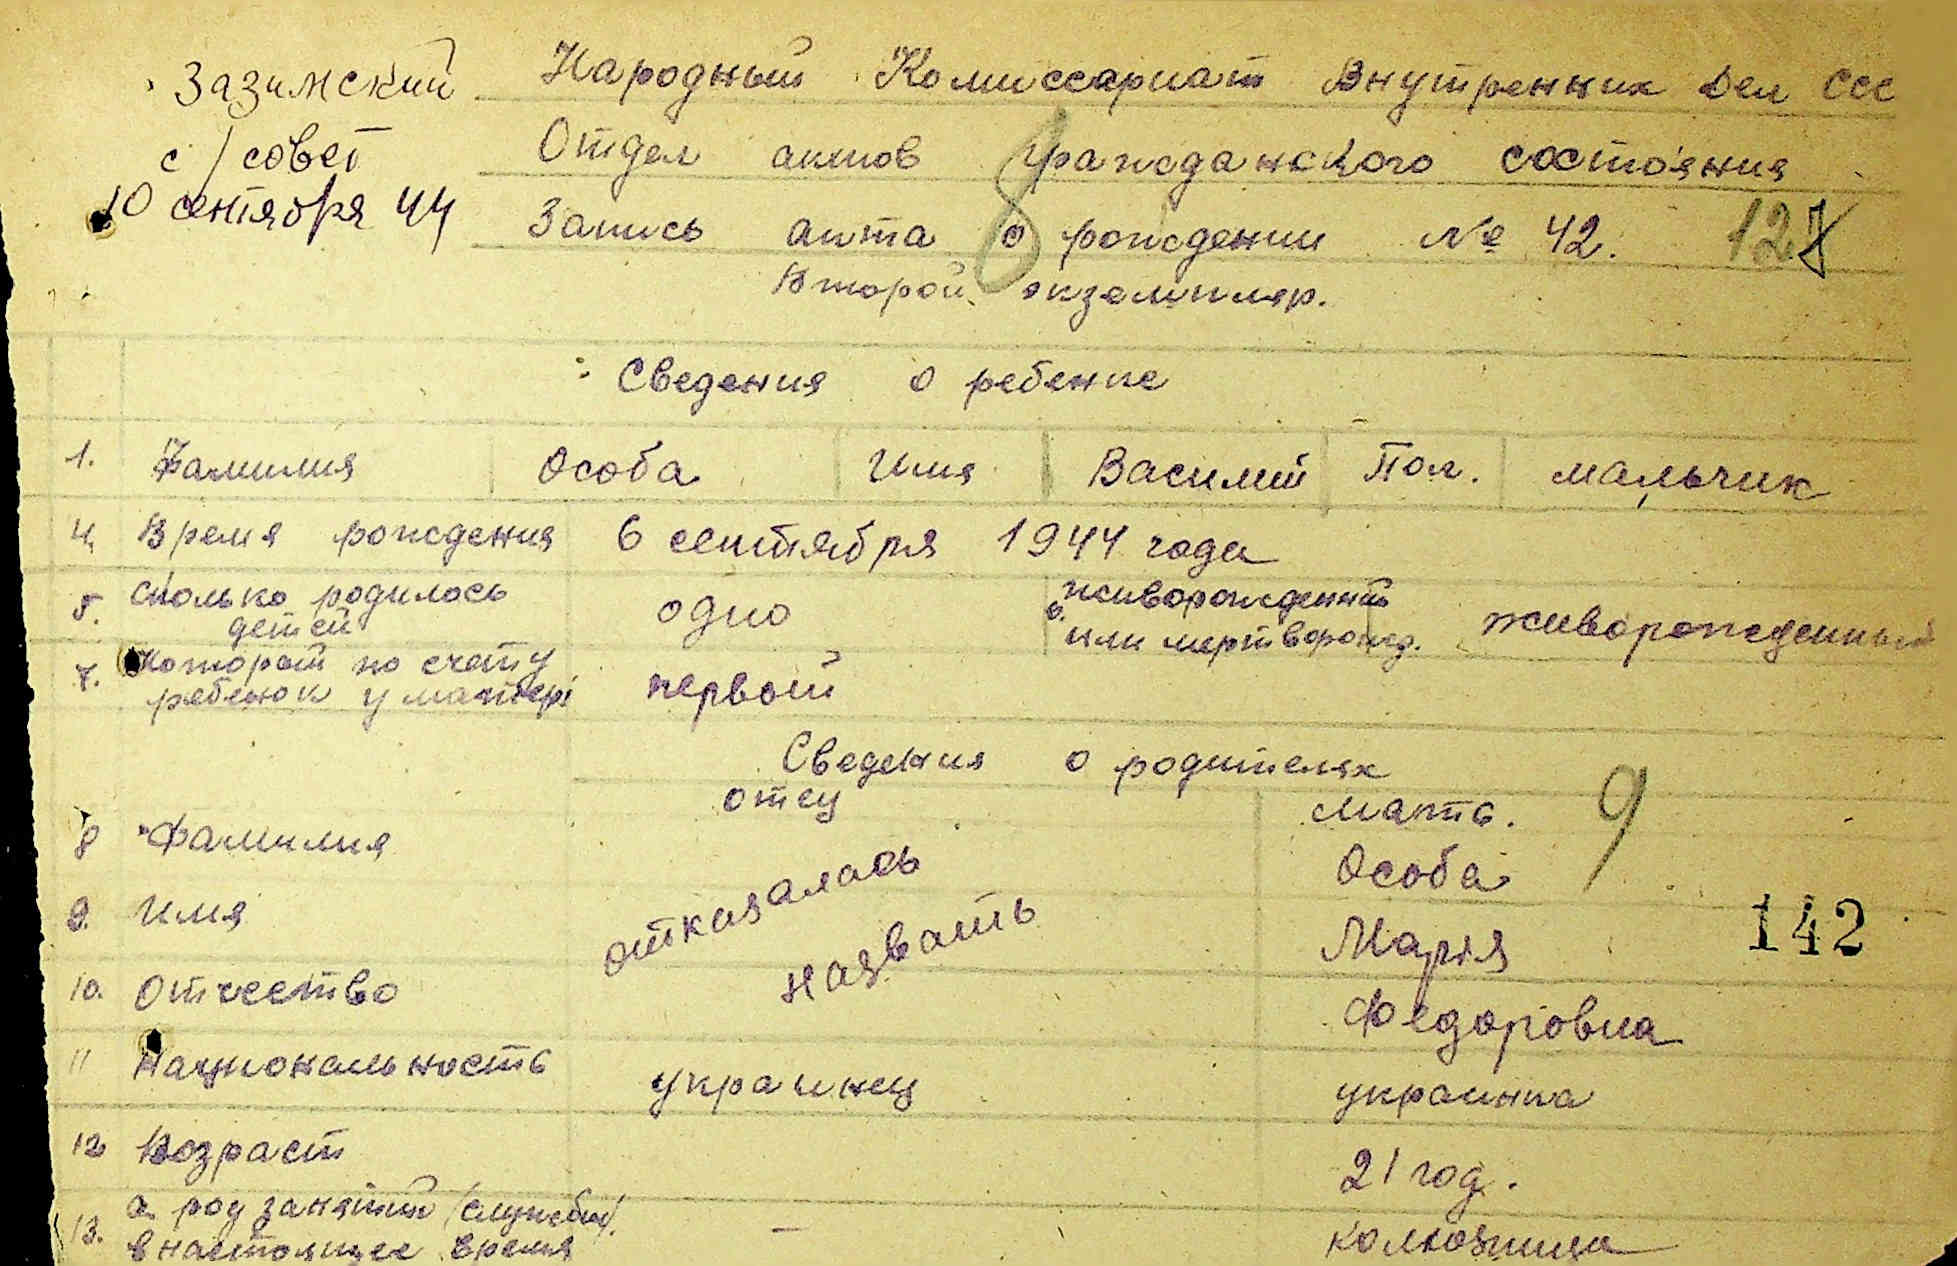 Зазимский
с/совет
10 сентября 44
Народный Комиссариат Внутренних Дел ССС
Отдел актов гражданского состояния
Запись акта о рождении № 42.
Второй экземпляр.
8
Сведения о ребенке
1. Фамилия Особа Имя Василий Пол. мальчик
4. Время рождения 6 сентября 1944 года
5. Сколько родилось детей одно 6. живорожденный или мертворожд. живорожденный
7. Который по счету ребенок у матери первый
Сведения о родителях
отец мать. 9
8 Фамилия Особа
отказалась назвать
9. Имя Марія 142
10. Отчество Федоровна
11 Национальность украинец украинка
12 Возраст 21 год.
13. а род занятий /службы/. в настоящее время — колхозница